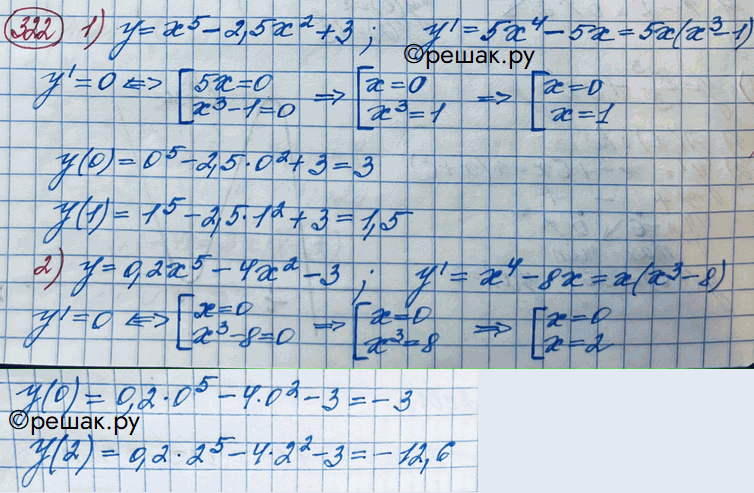 322 1) y = x⁵ - 2,5x² + 3 ; y' = 5x⁴ - 5x = 5x(x³ - 1)
©решак.ру
y' = 0 <=> [ 5x = 0 x³ - 1 = 0 => [ x = 0 x³ = 1 => [ x = 0 x = 1
y(0) = 0⁵ - 2,5·0² + 3 = 3
y(1) = 1⁵ - 2,5·1² + 3 = 1,5
2) y = 0,2x⁵ - 4x² - 3 ; y' = x⁴ - 8x = x(x³ - 8)
y' = 0 <=> [ x = 0 x³ - 8 = 0 => [ x = 0 x³ = 8 => [ x = 0 x = 2
y(0) = 0,2·0⁵ - 4·0² - 3 = -3
©решак.ру
y(2) = 0,2·2⁵ - 4·2² - 3 = -12,6